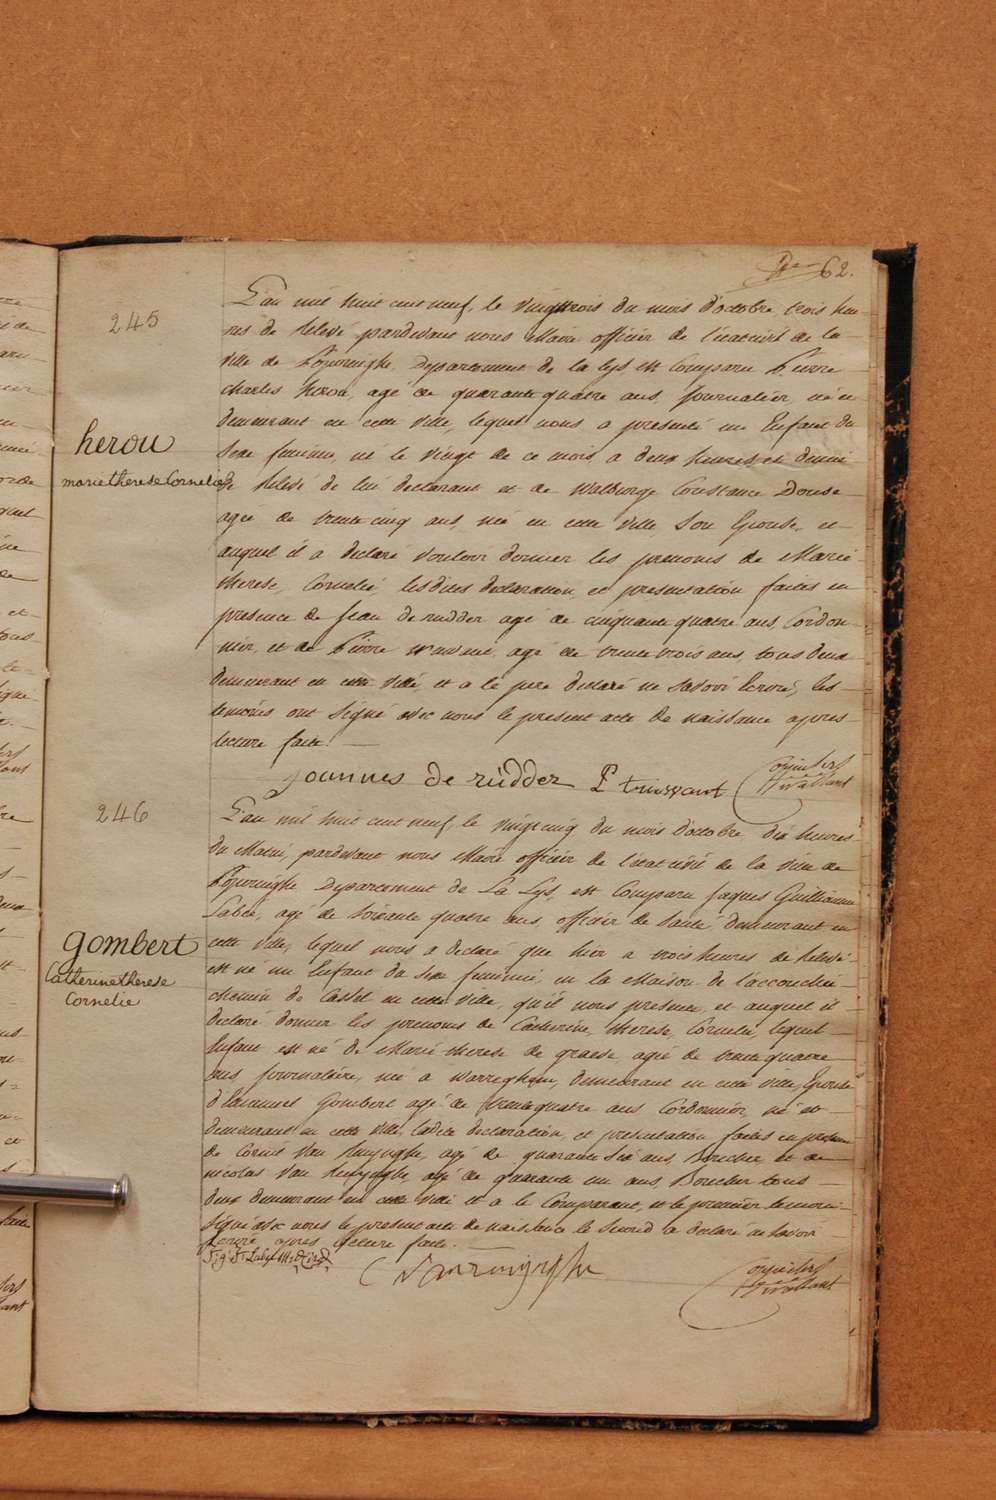 62.
245
herou
marie therese Cornelie
L'an mil huit cent neuf, le vingttrois du mois d'octobre, trois heu
res de relevé pardevant nous Maire officier de l'état civil de la
ville de Poperinghe, Departement de la Lys est Comparu Pierre
charles Herou, agé de quarante quatre ans, Journalier, né et
demeurant en cette ville, lequel nous a presenté un Enfant du
Sexe feminin, né le vingt de ce mois, a deux heures et demi
de Relevé de lui declarant et de Walburge Constance Douse
agée de trente cinq ans, née en cette ville, Son Epouse, et
auquel il a declaré vouloir donner les prenoms de Marie
therese, Cornelie, lesdites declaration et presentation faites en
presence de Jean de rudder agé de cinquante quatre ans, Cordon
nier, et de Pierre agé de trente trois ans, tous deux
demeurant en cette ville, et a le pere declaré ne savoir Ecrire, les
temoins ont Signé avec nous le present acte de naissance apres
lecture faite.
Joannes de rüdder P
246
gombert
Catherine therese
Cornelie
L'an mil huit cent neuf, le vingt cinq du mois d'octobre dix heures
du Matin, pardevant nous Maire officier de l'état civil de la ville de
Poperinghe Departement de La Lys, est Comparu Jaques Guilliaume
agé de Soixante quatre ans, officier de Santé demeurant en
cette ville, lequel nous a declaré que hier a trois heures de Relevé
est né un Enfant du sexe feminin, en la Maison de l'accouchée
chemin de Cassel en cette ville, qu'il nous presente et auquel il
declaré donner les prenoms de Catherine, therese, Cornelie, lequel
Enfant est né de Marie therese de graeve, agée de trente quatre
ans, Journalière, née a demeurant en cette ville, Epouse
Gombert agé de trente quatre ans Cordonnier, né et
demeurant en cette ville, ladite declaration, et presentation faites en presence
de Van agé de quarante Six ans, Boucher et de
nicolas Van agé de quarante un ans, Boucher tous
deux demeurant en cette ville et a le Comparant, et le premier temoin
Signé avec nous le present acte de naissance le Second a declaré ne Savoir
Ecrire apres lecture faite.